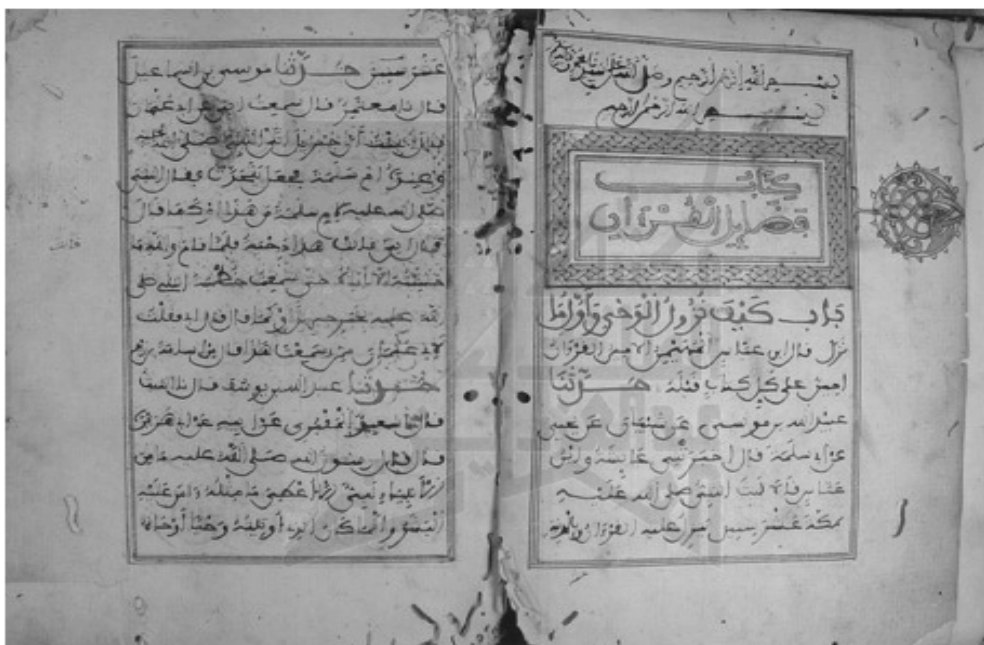 بسم الله الرحمن الرحيم وصلى الله على سيدنا محمد
بسم الله الرحمن الرحيم
كتاب
فضايل القرءان
باب كيف نزول الوحي وأول ما
نزل قال ابن عباس المهيمن الامين القرءان
امين على كل كتاب قبله حدثنا
عبيد الله بن موسى عن شيبان عن يحيى
عن أبي سلمة قال اخبرتني عايشة وابن
عباس قالا لبث النبي صلى الله عليه
بمكة عشر سنين ينزل عليه القرءان وبالمدينة
عشر سنين حدثنا موسى بن اسماعيل
قال نا معتمر قال سمعت ابي عن ابي عثمان
قال انبئت أن جبريل أتى النبي صلى الله عليه
وعنده ام سلمة فجعل يتحدث فقال النبي
صلى الله عليه لام سلمة من هذا او كما قال
قالت هذا دحية فلما قام والله ما
حسبته الا اياه حتى سمعت خطبة النبي صلى
الله عليه بخبر جبريل او كما قال قال ابي فقلت
لابي عثمان ممن سمعت هذا قال من اسامة بن زيد
حدثنا عبد الله بن يوسف قال نا الليث
قال نا سعيد المقبري عن ابيه عن ابي هريرة
قال قال رسول الله صلى الله عليه ما من
الأنبياء نبي إلا أعطي ما مثله ءامن عليه
البشر وانما كان الذي أوتيته وحيا أوحاه